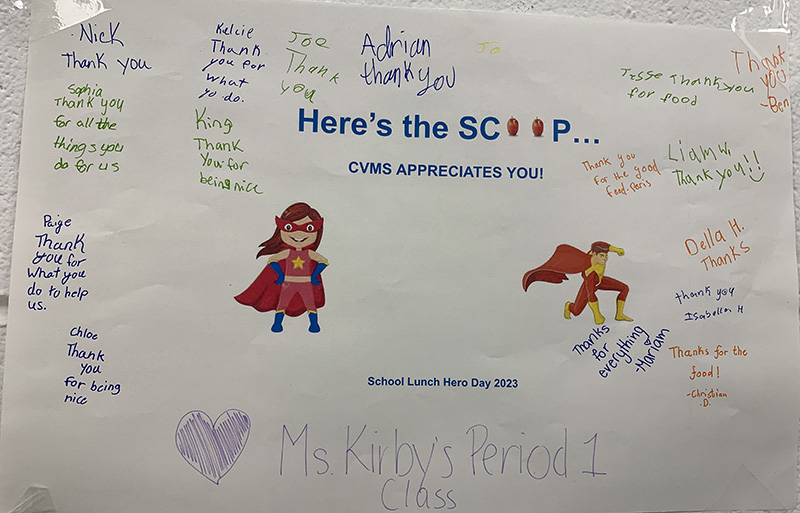 Nick
Thank you
Kelcie
Thank
you for
what
you do.
Joe
Thank
you
Adrian
thank you
Jo
Jesse Thank you
for food
Thank
you
-Ben
Sophia
Thank you
for all the
things you
do for us
King
Thank
you for
being nice
Here's the SC P...
CVMS APPRECIATES YOU!
Thank you
for the good
food-Paris
Liam W.
Thank you!!
Della H.
Thanks
Paige
Thank
you for
what you
do to help
us.
thank you
Isabella H
Thanks
for
everything
-Mariam
Thanks for the
food!
-Christian
D.
Chloe
Thank
you
for being
nice
School Lunch Hero Day 2023
Ms. Kirby's Period 1
Class